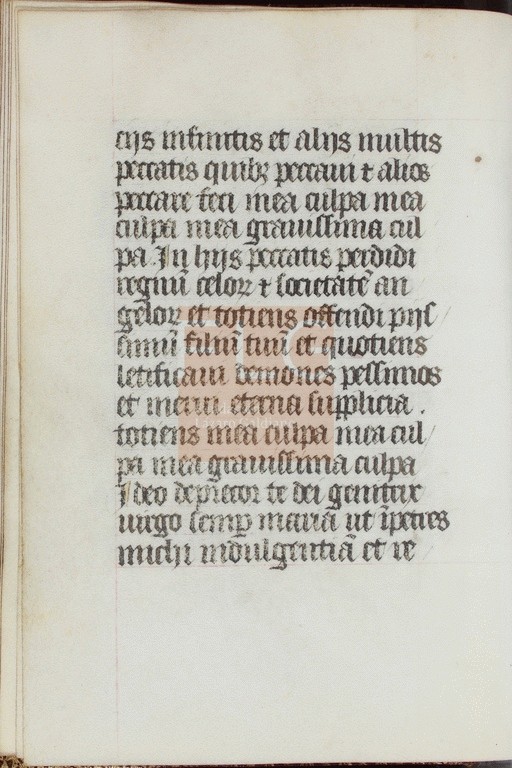 cijs infinitis et alijs multis
peccatis quibꝫ peccaui ⁊ alios
peccare feci mea culpa mea
culpa mea grauissima cul
pa. In hijs peccatis perdidi
regnū celoꝝ ⁊ societatē an
geloꝝ et totiens offendi pijs/
simū filiū tuū et quotiens
letificaui demones pessimos
et merui eterna supplicia .
totiens mea culpa mea cul/
pa mea grauissima culpa
Ideo deprecor te dei genitrix
uirgo semꝑ maria ut īpetres
michi indulgentiā et re